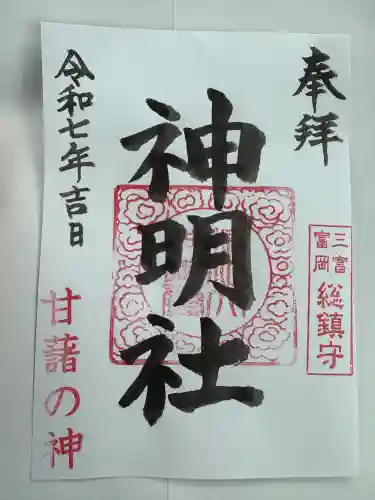 奉拝
三富
富岡
総鎮守
神明社
令和七年吉日
甘藷の神